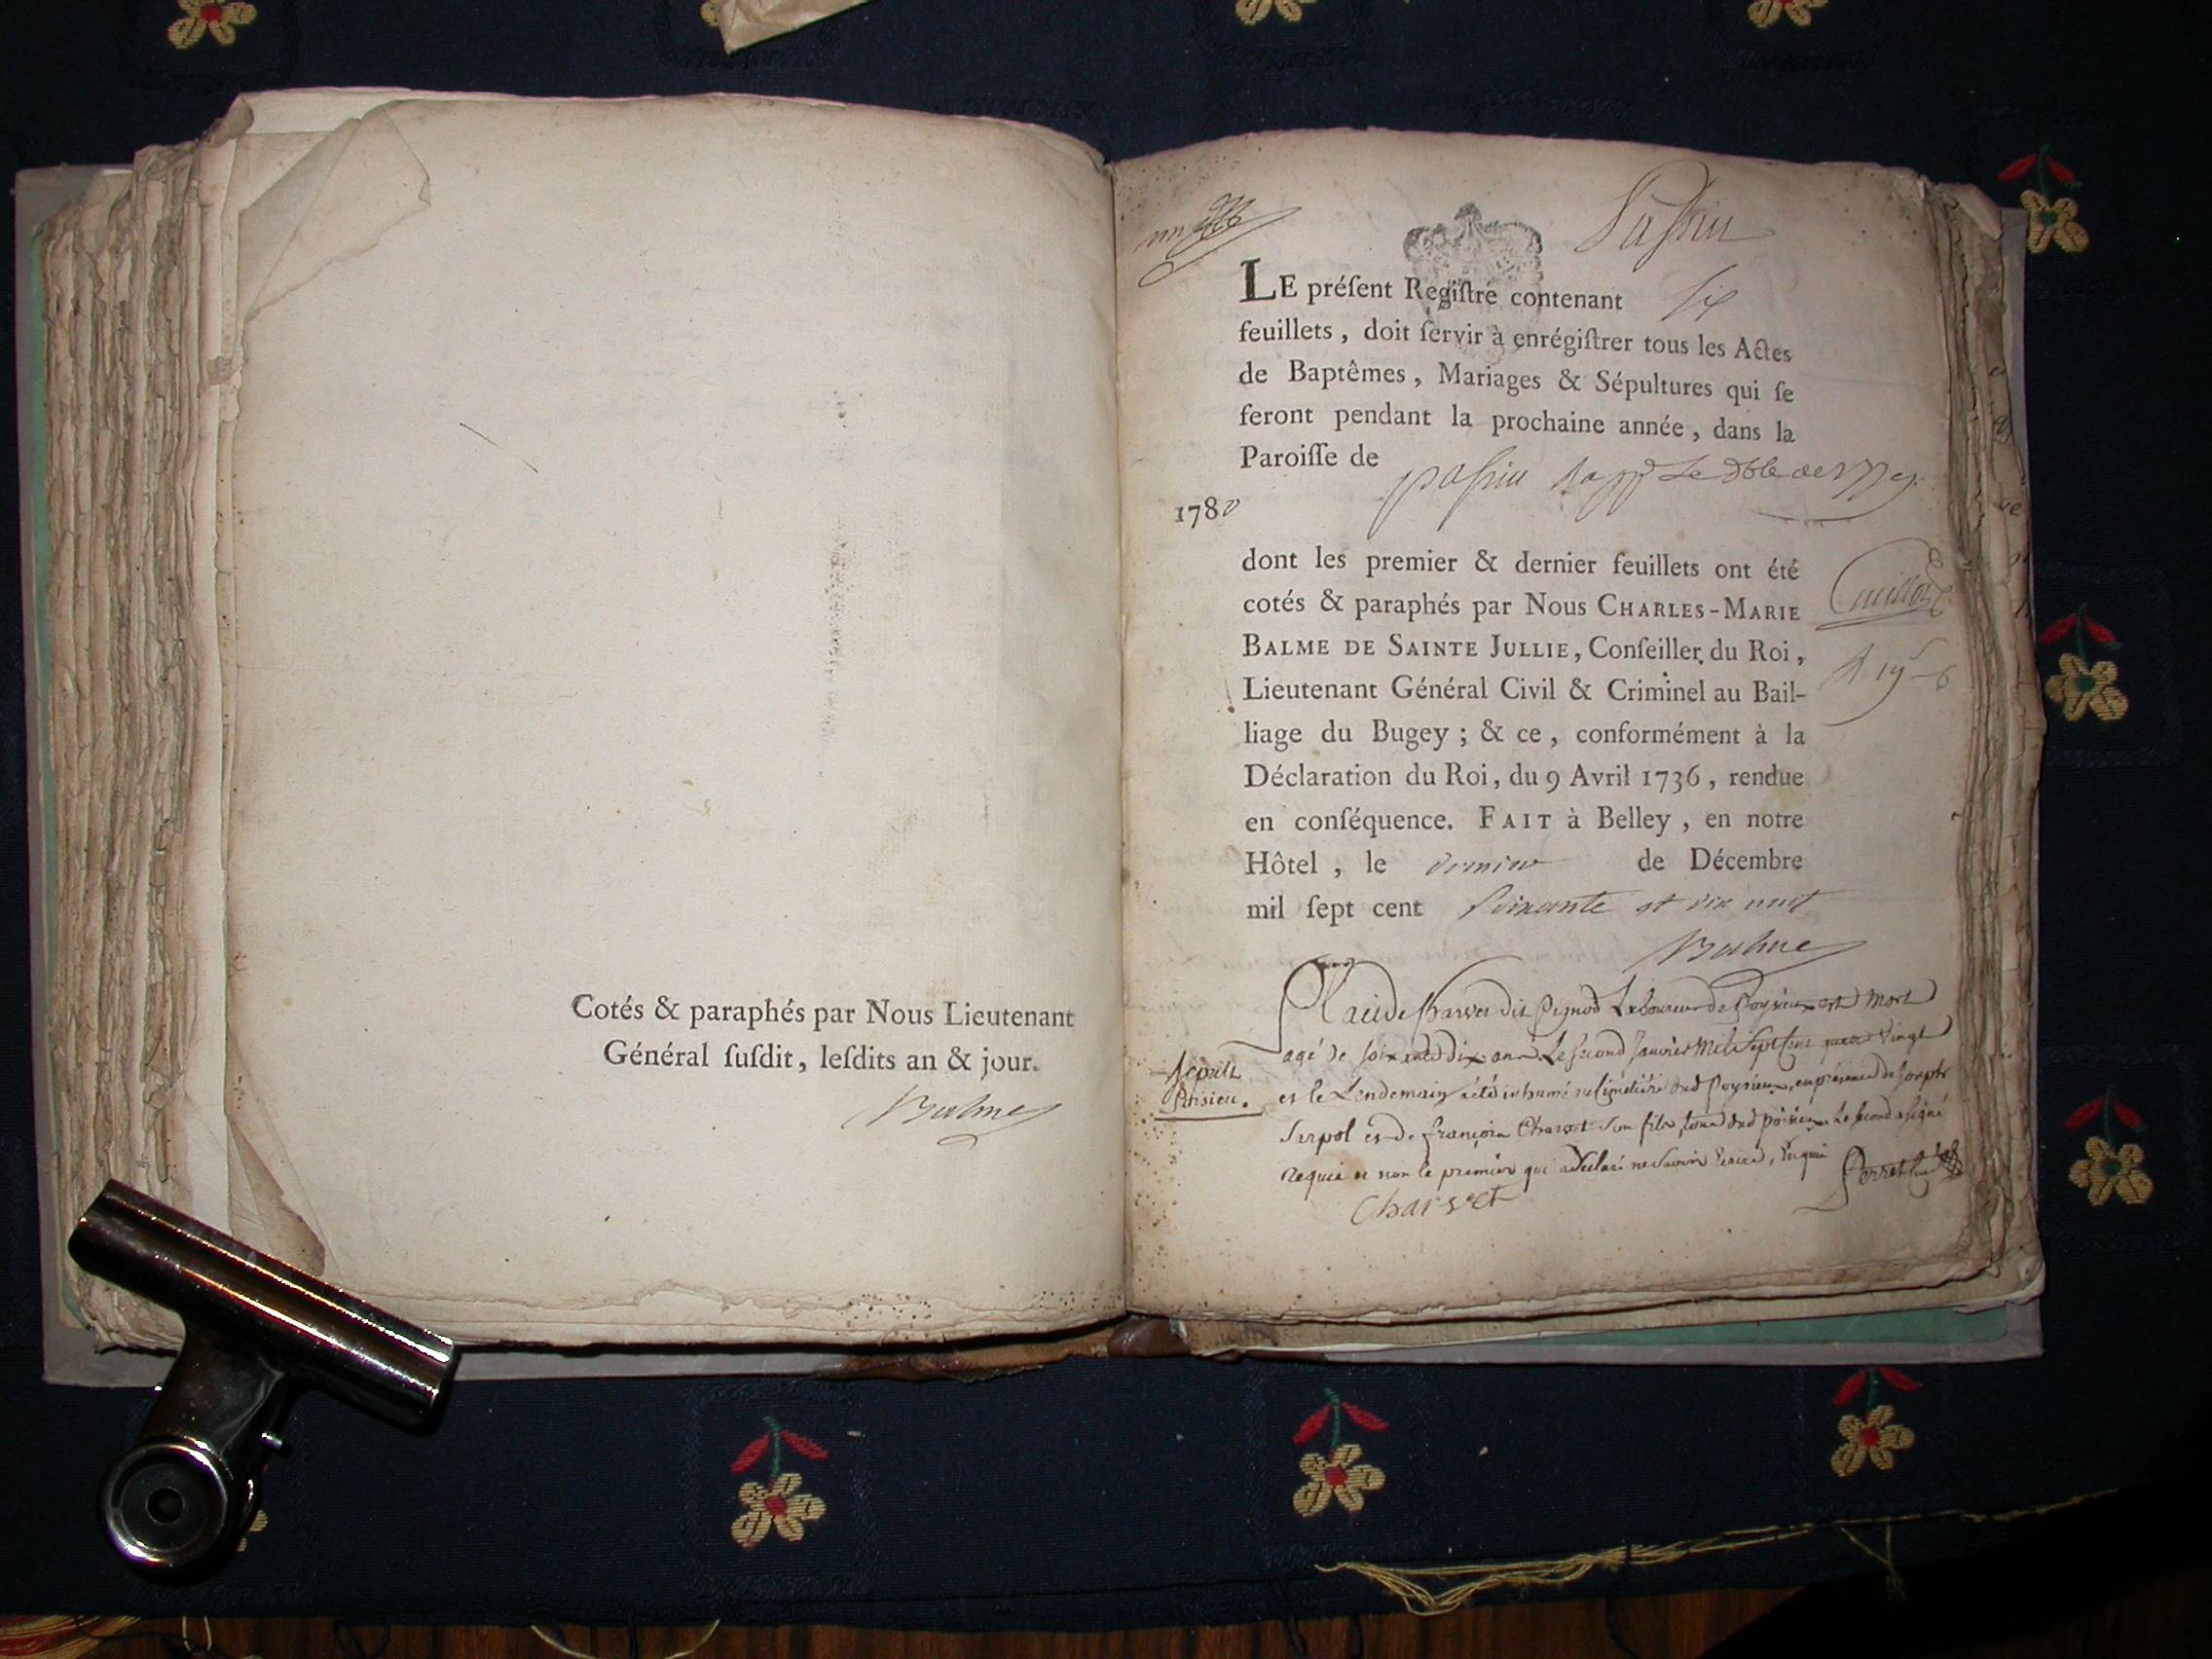 Cotés & paraphés par Nous Lieutenant
Général ſuſdit, leſdits an & jour.
Balme
LE préſent Regiſtre contenant ſix
feuillets, doit ſervir à enrégiſtrer tous les Actes
de Baptêmes, Mariages & Sépultures qui ſe
feront pendant la prochaine année, dans la
Paroiſſe de
1780
dont les premier & dernier feuillets ont été
cotés & paraphés par Nous CHARLES-MARIE
BALME DE SAINTE JULLIE, Conſeiller du Roi,
Lieutenant Général Civil & Criminel au Bail-
liage du Bugey; & ce, conformément à la
Déclaration du Roi, du 9 Avril 1736, rendue
en conſéquence. FAIT à Belley, en notre
Hôtel, le dernier de Décembre
mil ſept cent ſoixante et dix neuf
Balme
Claude Charvet dit Pignod Laboureur de Poysieu est mort
agé de soixante dix ans Le second Janvier Mil Sept Cent quatre Vingt
et le Lendemain a été inhumé au Cimetière dud Poysieu, en présence de Joseph
Serpol et de françois Charvet son fils, tous dud poisieu Le second a signé
requis et non le premier qui a declaré ne savoir Ecrire, Enquis
Charvet